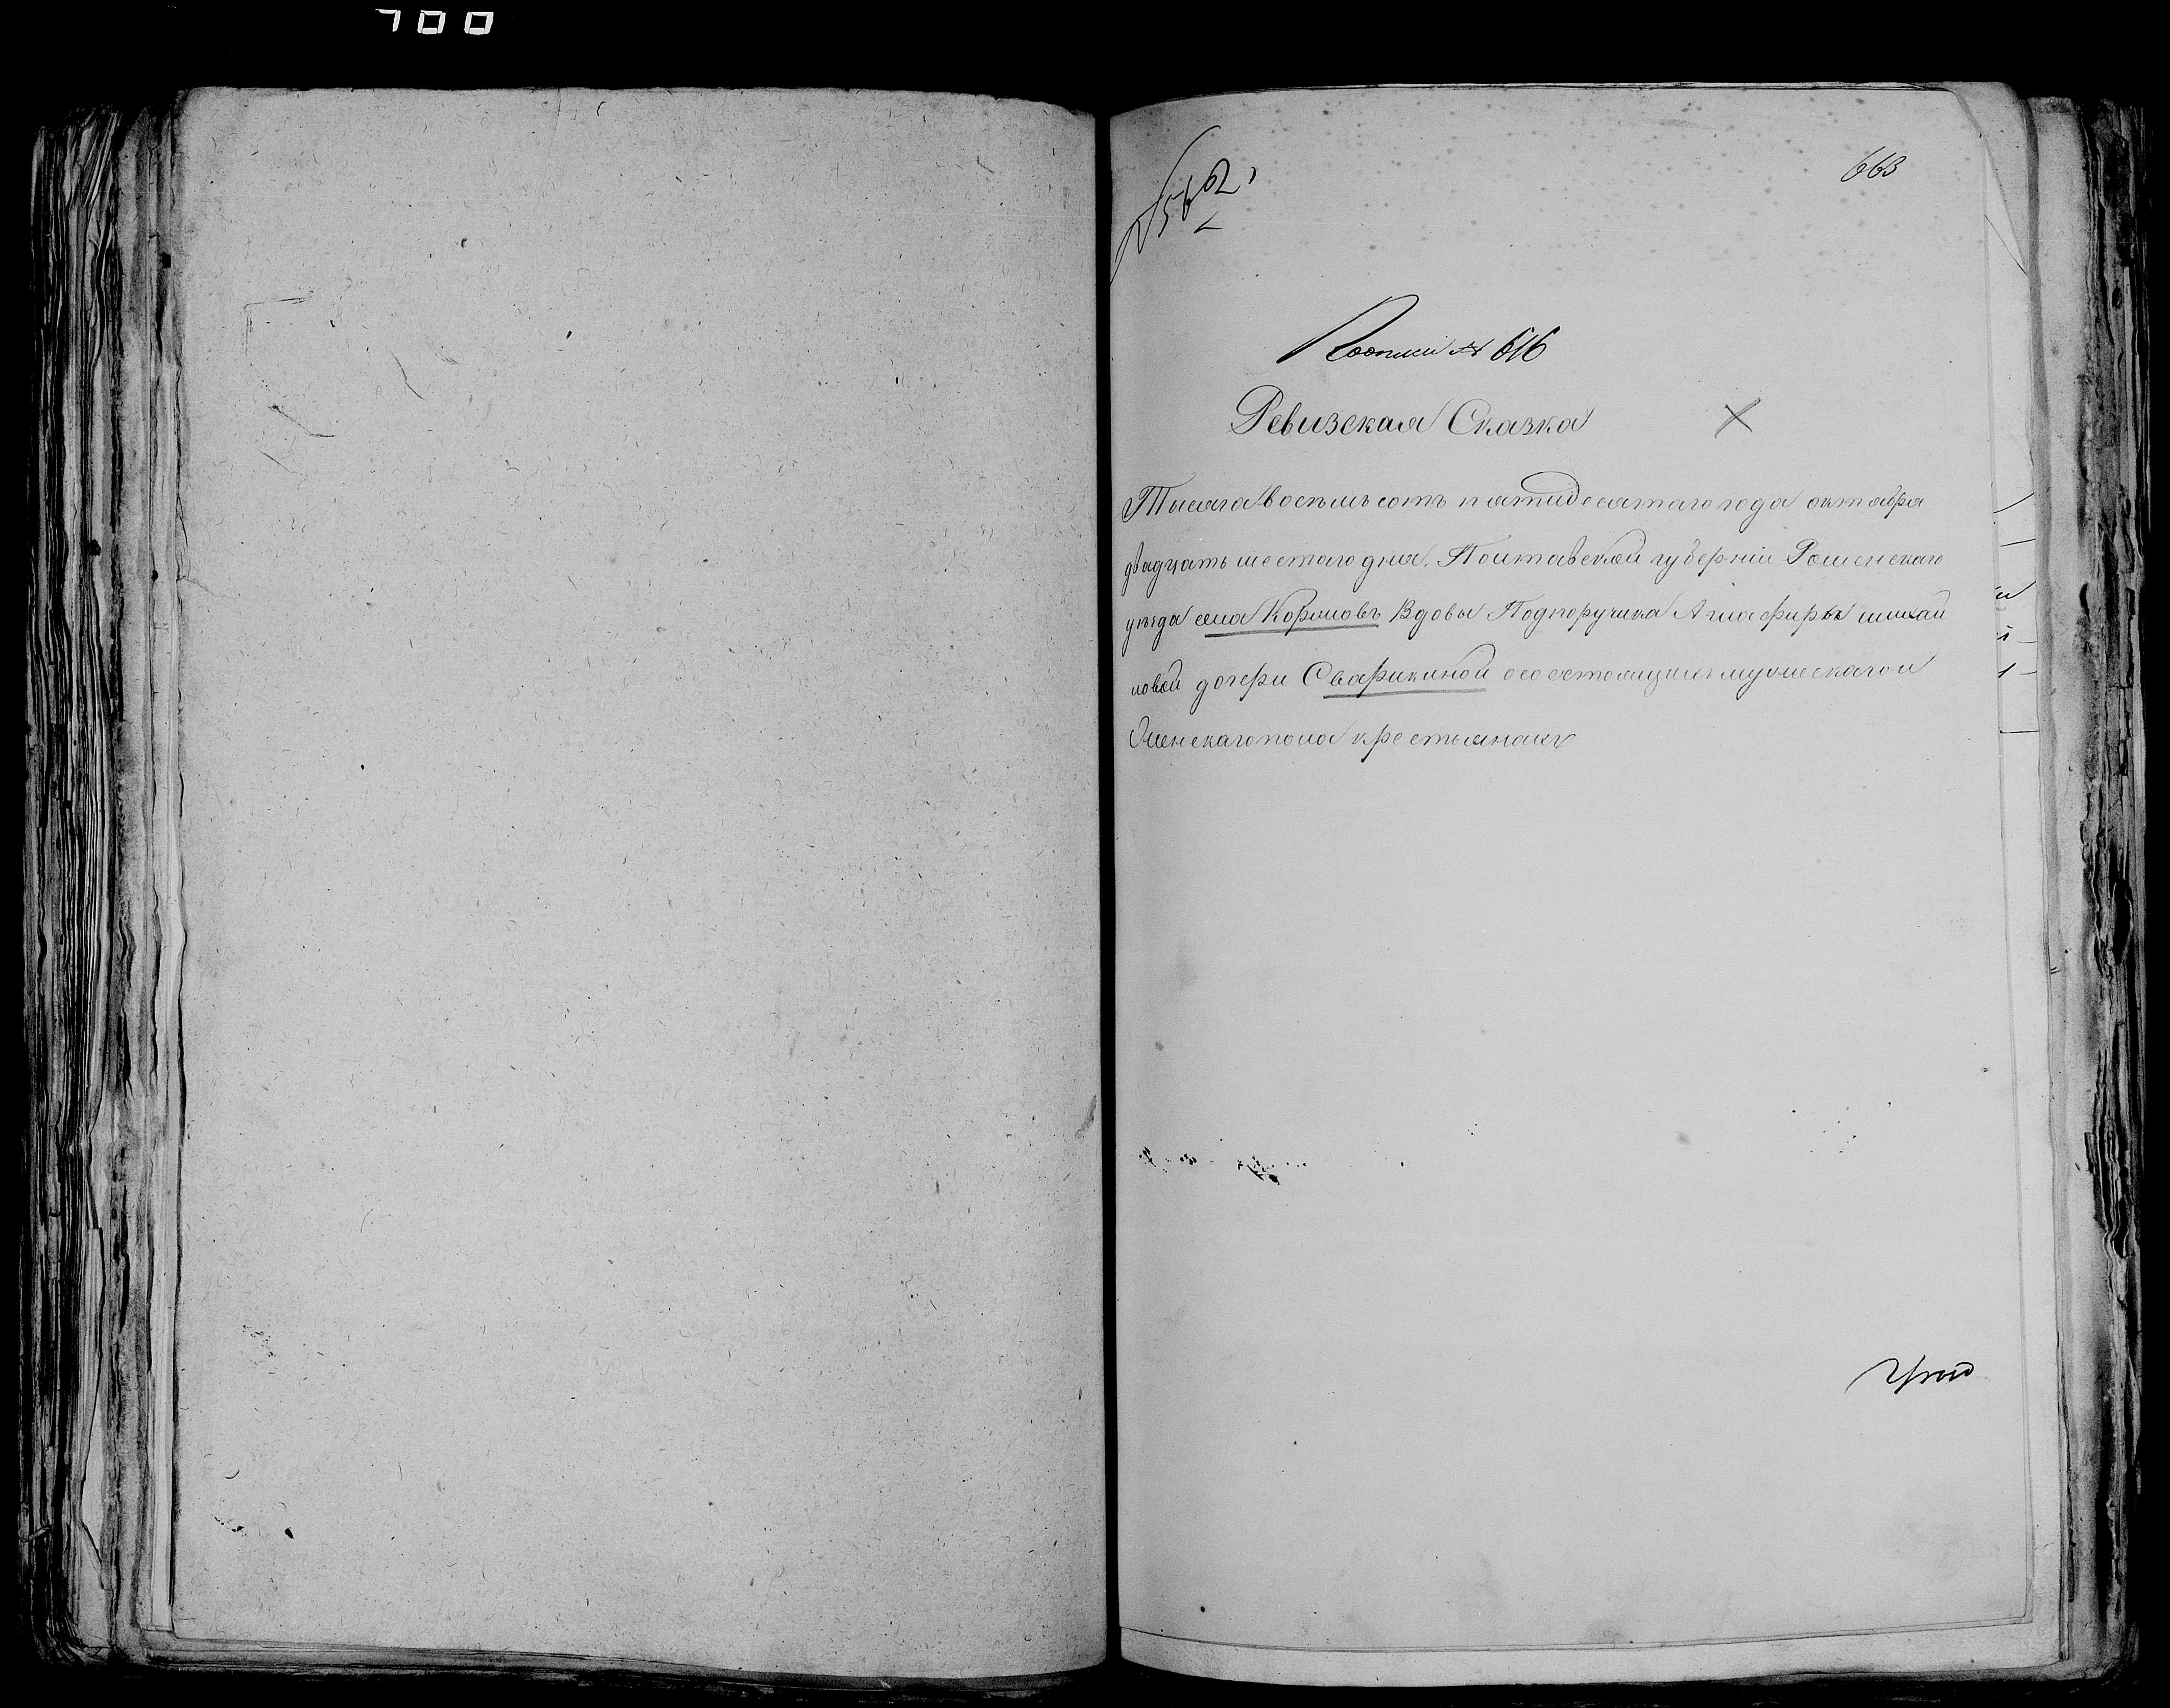 700
№ 562.
663
По описи № 616
Ревизская Сказка
Тысяча восемь сотъ пятидесятаго года октября
двадцать шестаго дня. Полтавской губерніи Роменскаго
уѣзда села Коршовъ Вдовы Подпоручика Агафиры михай
ловой дочери Сварикиной осостоящихъ мужескаго и
Женскаго пола крестьянахъ